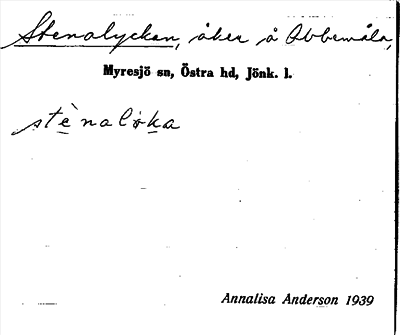 Stenalyckan, åker å Abbemåla,
Myresjö sn, Östra hd, Jönk. l.
stènalöka
Annalisa Anderson 1939